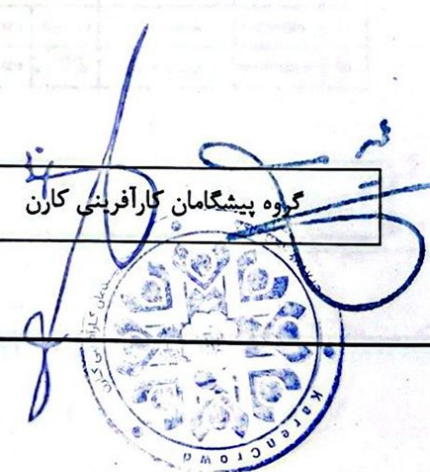 گروه پیشگامان کارآفرینی کارن
KarenCrowd